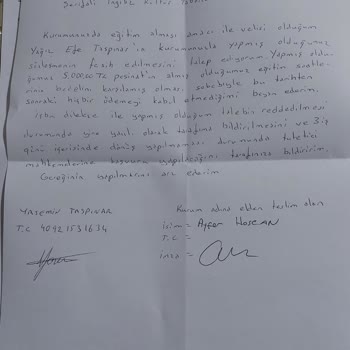 Kurumunuzda eğitim alması amacı ile velisi olduğum
Yağız Efe Taşpınar'ın kurumunuzla yapmış olduğumuz
sözleşmenin fesih edilmesini talep ediyorum. Yapmış olduğumuz
5.000.00 TL peşinat'ın almış olduğumuz eğitim saatlerinin
bedelini karşılamış olması sebebiyle bu tarihten
sonraki hiçbir ödemeyi kabul etmediğimi beyan ederim.
İşbu dilekçe ile yapmış olduğum talebin reddedilmesi
durumunda yine yazılı olarak tarafıma bildirilmesini ve 3 iş
günü içerisinde dönüş yapılmaması durumunda tüketici
mahkemelerine başvuru yapılacağını tarafınıza bildiririm.
Gereğinin yapılmasını arz ederim
YASEMİN TAŞPINAR
T.C 40921531634
Kurum adına elden teslim alan
isim = Ayfer
T.C =
imza =